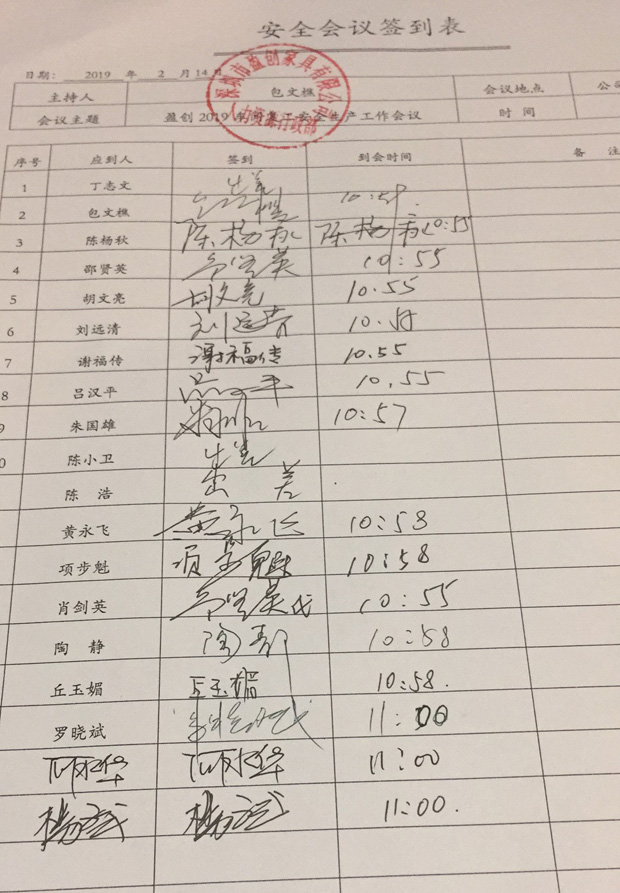 安全会议签到表
日期: 2019 年 2 月 14 日
主持人 包文樵 会议地点 公司
会议主题 盈创2019年 安全生产工作会议 时间
人力资源行政部
序号 应到人 签到 到会时间 备注
1 丁志文 出差
2 包文樵 包文樵 10:58.
3 陈杨秋 陈杨秋 陈杨秋 10:55
4 邵贤英 邵贤英 10:55
5 胡文亮 胡文亮 10.55
6 刘远清 刘远清 10.55
7 谢福传 谢福传 10.55
8 吕汉平 吕汉平 10.55
9 朱国雄 10:57
0 陈小卫 出差
陈浩 出差
黄永飞 黄永飞 10:58
项步魁 项步魁 10:58
肖剑英 邵贤英代 10:55
陶静 陶静 10:58
丘玉媚 丘玉媚 10:58.
罗晓斌 11:00
11:00
11:00.